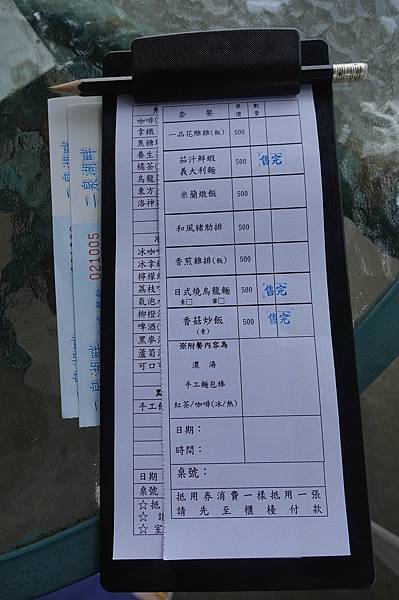 套餐 單價 數量
一品花雕雞(飯) 500
茄汁鮮蝦
義大利麵 500 售完
米蘭燉飯 500
和風豬肋排 500
香煎雞排(飯) 500
日式燒烏龍麵 500 售完
素□ 葷□
香菇炒飯 500 售完
(素)
※附餐內容為
濃湯
手工麵包棒
紅茶/咖啡(冰/熱)
日期：
時間：
桌號：
抵用券消費一樣抵用一張
請先至櫃檯付款
咖啡(
拿鐵
焦糖
養生
橘茶(
烏龍
東方
洛神
冰咖
冰拿
檸檬
荔枝
氣泡水
柳橙
啤酒(
黑麥
蘆筍
可口
手工
日期
桌號
☆抵
☆請
☆室
二泉湖畔
021005